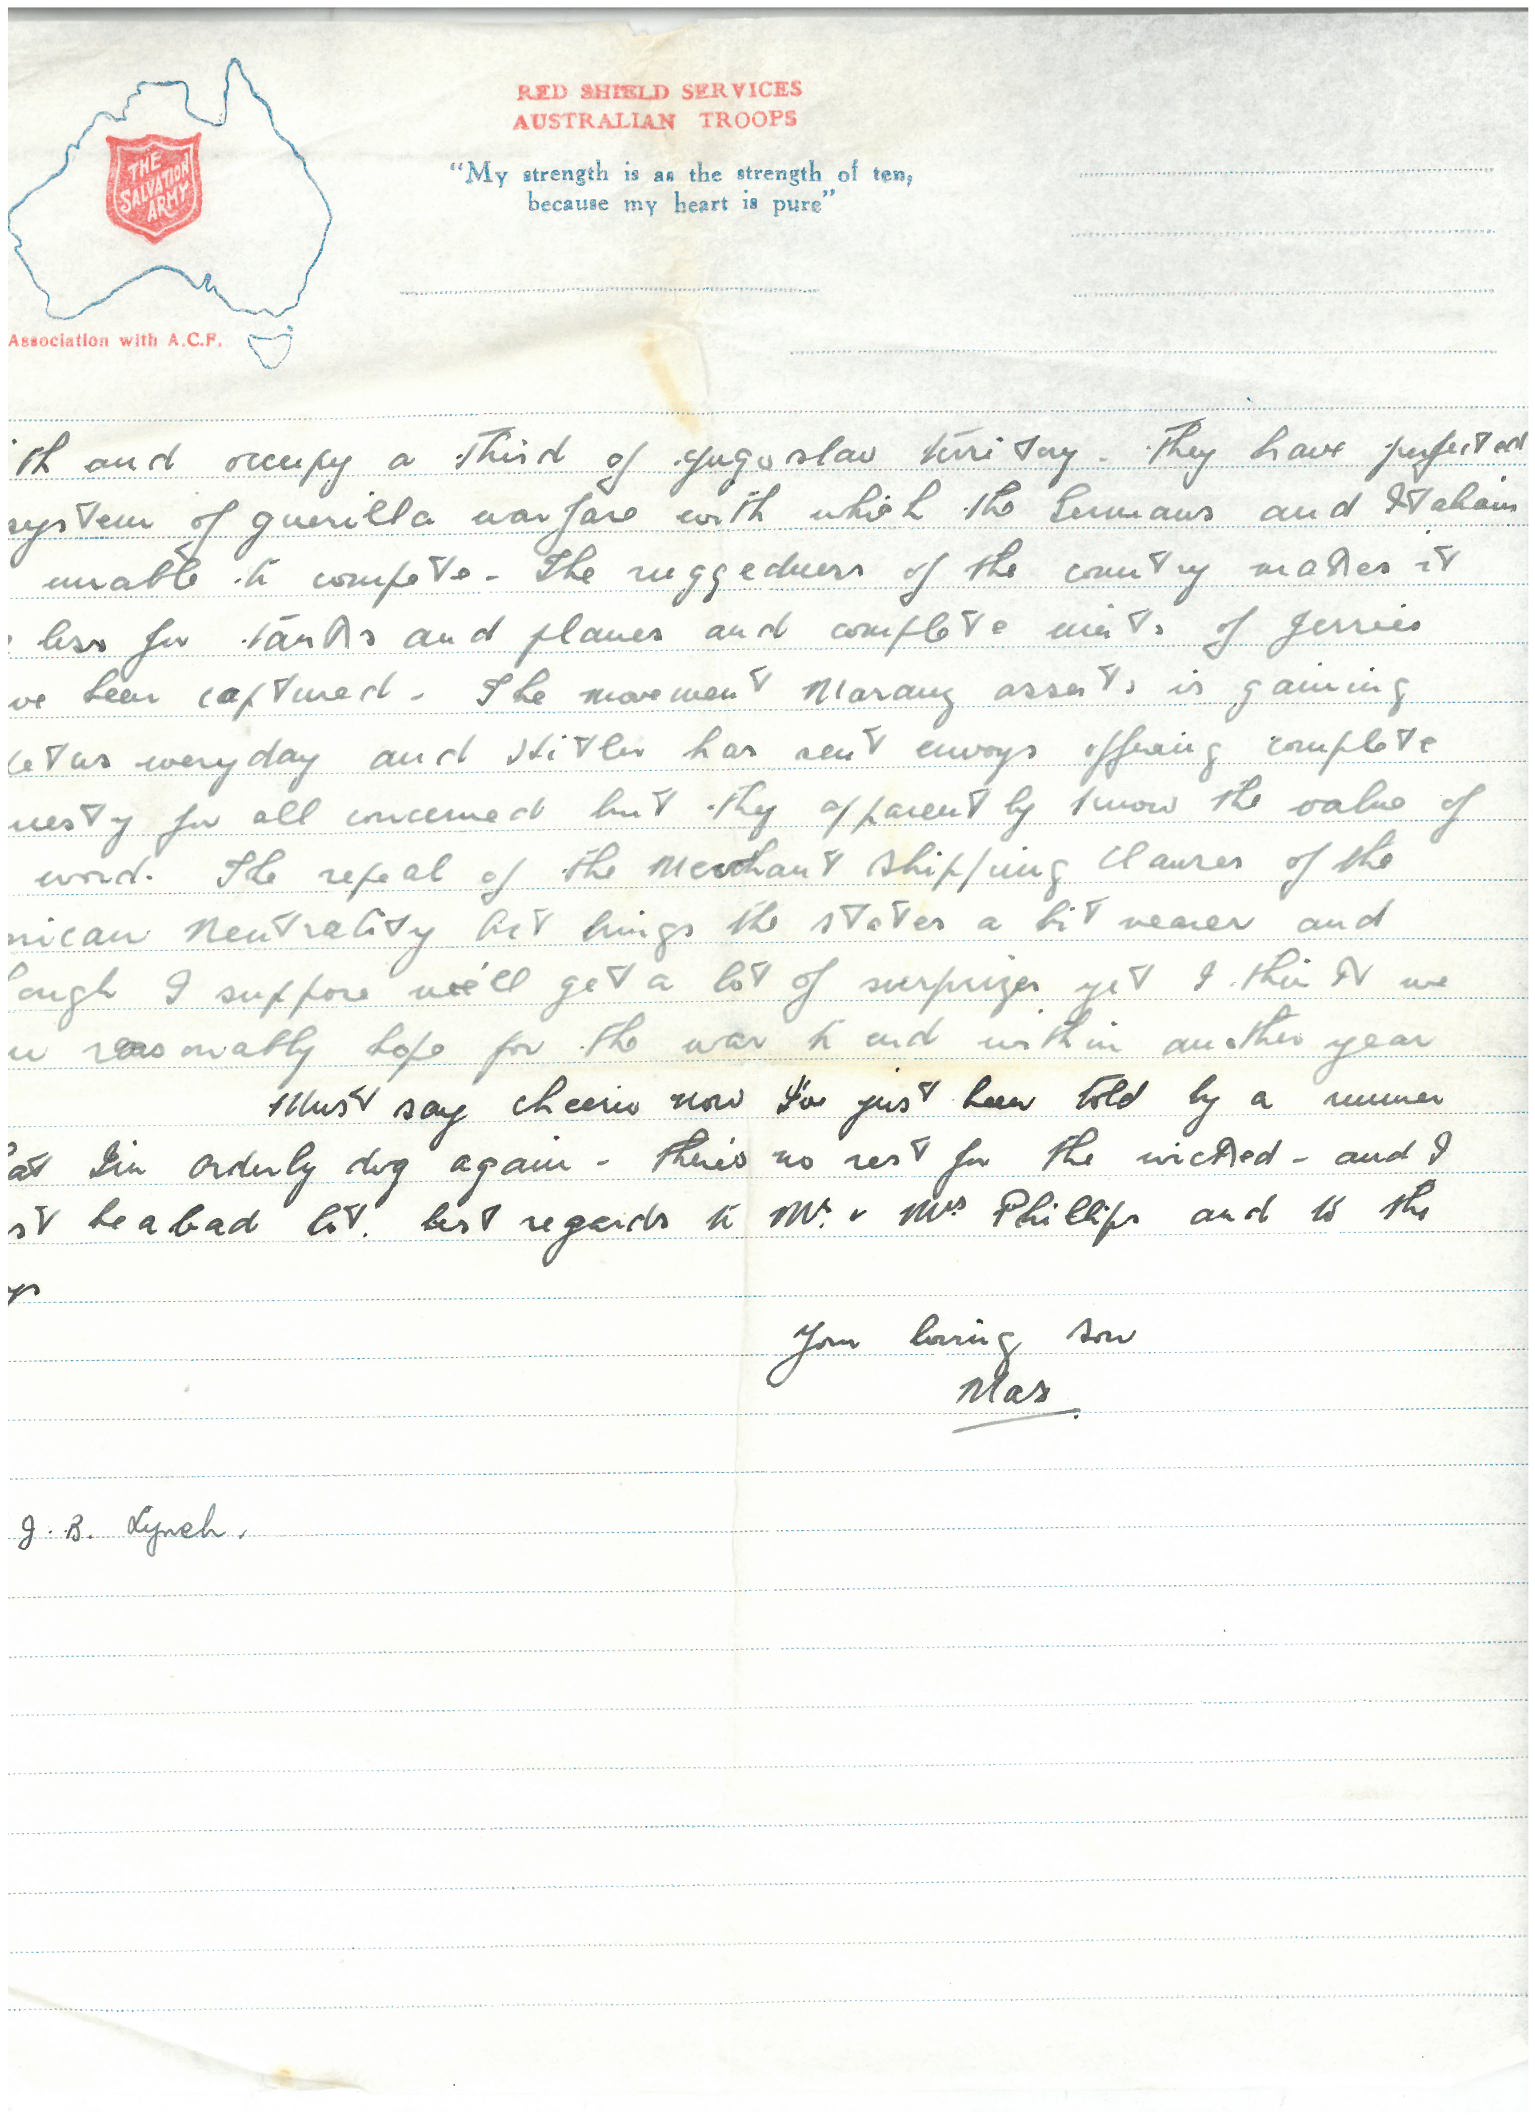 THE
SALVATION
ARMY
RED SHIELD SERVICES
AUSTRALIAN TROOPS
"My strength is as the strength of ten,
because my heart is pure"
Association with A.C.F.
ith and occupy a third of yugoslav territory. They have perfected
system of guerilla warfare with which the Germans and Italians
unable to compete. The ruggedness of the country makes it
less for tanks and planes and complete units of Jerries
ve been captured. The movement asserts is gaining
etus everyday and Hitler has sent envoys offering complete
nesty for all concerned but they apparently know the value of
word. The repeal of the Merchant Shipping Clauses of the
rican Neutrality Act brings the states a bit nearer and
ough I suppose we'll get a lot of surprizes yet I think we
n reasonably hope for the war to end within another year
Must say cheerio now I've just been told by a runner
at I'm Orderly dog again - there's no rest for the wicked - and I
st be a bad lot. best regards to Mr. & Mrs Phillips and to the
ys
Your loving son
Max
J. B. Lynch.